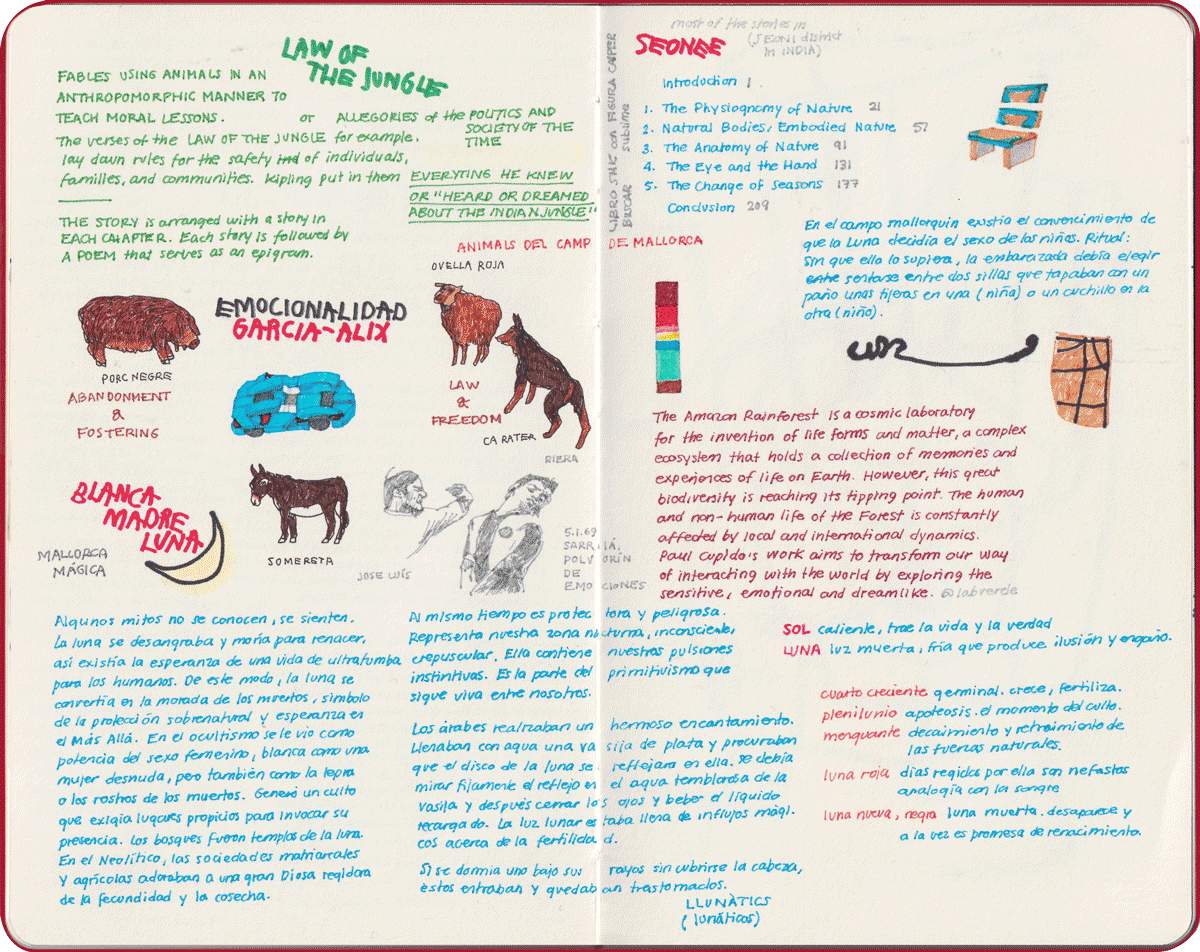 LAW OF
THE JUNGLE
FABLES USING ANIMALS IN AN
ANTHROPOMORPHIC MANNER TO
TEACH MORAL LESSONS. or ALLEGORIES of the POLITICS AND
SOCIETY OF THE
TIME
The verses of the LAW OF THE JUNGLE for example.
lay down rules for the safety ind of individuals,
families, and communities. Kipling put in them EVERYTING HE KNEW
OR "HEARD OR DREAMED
ABOUT THE INDIAN JUNGLE"
THE STORY is arranged with a story in
EACH CHAPTER. Each story is followed by
A POEM that serves as an epigram.
ANIMALS DEL CAMP DE MALLORCA
OVELLA ROJA
EMOCIONALIDAD
GARCIA-ALIX
PORC NEGRE
ABANDONMENT
&
FOSTERING
LAW
&
FREEDOM
CA RATER
RIERA
BLANCA
MADRE
LUNA
MALLORCA
MÁGICA
SOMERETA
JOSE LUÍS
5.1.69
SARRIÁ,
POLVORÍN
DE
EMOCIONES
Algunos mitos no se conocen, se sienten.
La luna se desangraba y moría para renacer,
así existía la esperanza de una vida de ultratumba
para los humanos. De este modo, la luna se
convertía en la morada de los muertos, símbolo
de la protección sobrenatural y esperanza en
el Más Allá. En el ocultismo se le vio como
potencia del sexo femenino, blanca como una
mujer desnuda, pero también como la lepra
o los rostros de los muertos. Generó un culto
que exigía lugares propicios para invocar su
presencia. Los bosques fueron templos de la luna.
En el Neolítico, las sociedades matriarcales
y agrícolas adoraban a una gran Diosa regidora
de la fecundidad y la cosecha.
Al mismo tiempo es protectora y peligrosa.
Representa nuestra zona nocturna, inconsciente,
crepuscular. Ella contiene nuestras pulsiones
instintivas. Es la parte del primitivismo que
sigue viva entre nosotros.
Los árabes realizaban un hermoso encantamiento.
Llenaban con agua una vasija de plata y procuraban
que el disco de la luna se reflejara en ella. Se debía
mirar fijamente el reflejo en el agua temblorosa de la
vasija y después cerrar los ojos y beber el líquido
recargado. La luz lunar estaba llena de influjos mági-
cos acerca de la fertilidad.
Si se dormía uno bajo sus rayos sin cubrirse la cabeza,
estos entraban y quedaban trastornados.
LLUNÀTICS
(lunáticos)
LIBRO SMK con FIGURA CASPER
BUSCAR sublime
SEONEE
most of the stories in
(SEONI district
in INDIA)
Introduction 1
1. The Physiognomy of Nature 21
2. Natural Bodies, Embodied Nature 57
3. The Anatomy of Nature 91
4. The Eye and the Hand 131
5. The Change of Seasons 177
Conclusion 209
En el campo mallorquín existía el convencimiento de
que la Luna decidía el sexo de los niños. Ritual:
Sin que ella lo supiera, la embarazada debía elegir
entre sentarse entre dos sillas que tapaban con un
paño unas tijeras en una (niña) o un cuchillo en la
otra (niño).
The Amazon Rainforest is a cosmic laboratory
for the invention of life forms and matter, a complex
ecosystem that holds a collection of memories and
experiences of life on Earth. However, this great
biodiversity is reaching its tipping point. The human
and non-human life of the Forest is constantly
affected by local and international dynamics.
Paul Cupido's work aims to transform our way
of interacting with the world by exploring the
sensitive, emotional and dreamlike. @labverde
SOL caliente, trae la vida y la verdad
LUNA luz muerta, fría que produce ilusión y engaño.
cuarto creciente germinal. crece, fertiliza.
plenilunio apoteosis. el momento del culto.
menguante decaimiento y retraimiento de
las fuerzas naturales.
luna roja días regidos por ella son nefastos
analogía con la sangre
luna nueva, negra luna muerta. desaparece y
a la vez es promesa de renacimiento.